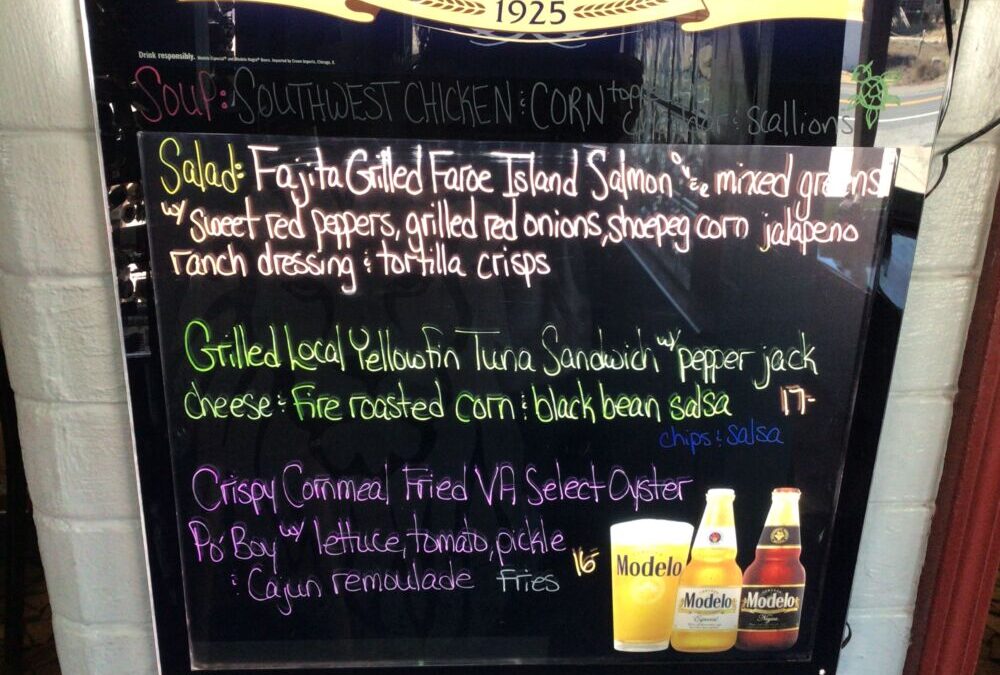 1925
Drink responsibly. Modelo Especial® and Modelo Negra® Beers. Imported by Crown Imports, Chicago, IL
Soup: Southwest Chicken & Corn
& scallions
Salad: Fajita Grilled Faroe Island Salmon mixed greens
w/ sweet red peppers, grilled red onions, shoepeg corn jalapeno
ranch dressing & tortilla crisps
Grilled Local Yellowfin Tuna Sandwich w/ pepper jack
cheese & fire roasted corn & black bean salsa 17-
chips & salsa
Crispy Cornmeal Fried VA Select Oyster
Po' Boy w/ lettuce, tomato, pickle
& Cajun remoulade fries 16-
Modelo
Modelo
Especial
Modelo
Negra